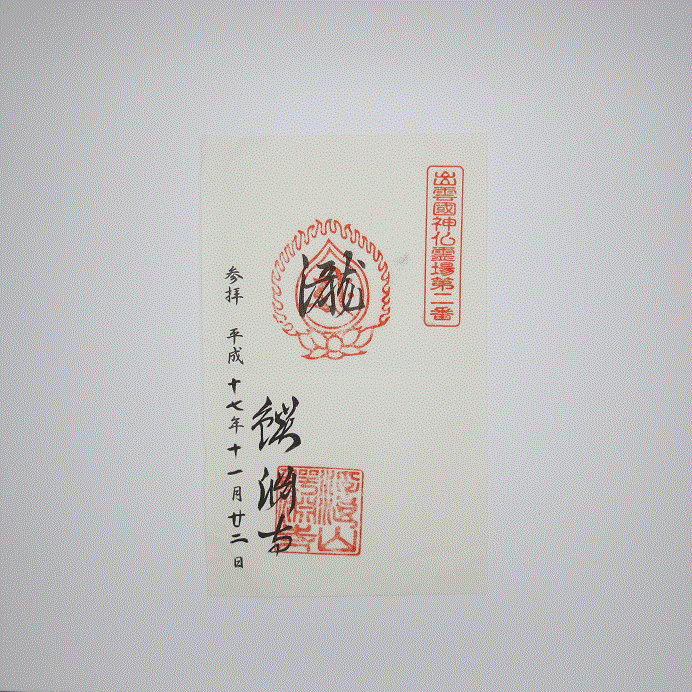 出雲國神仏霊場第二番
瀧
鰐淵寺
参拝 平成十七年十一月廿二日